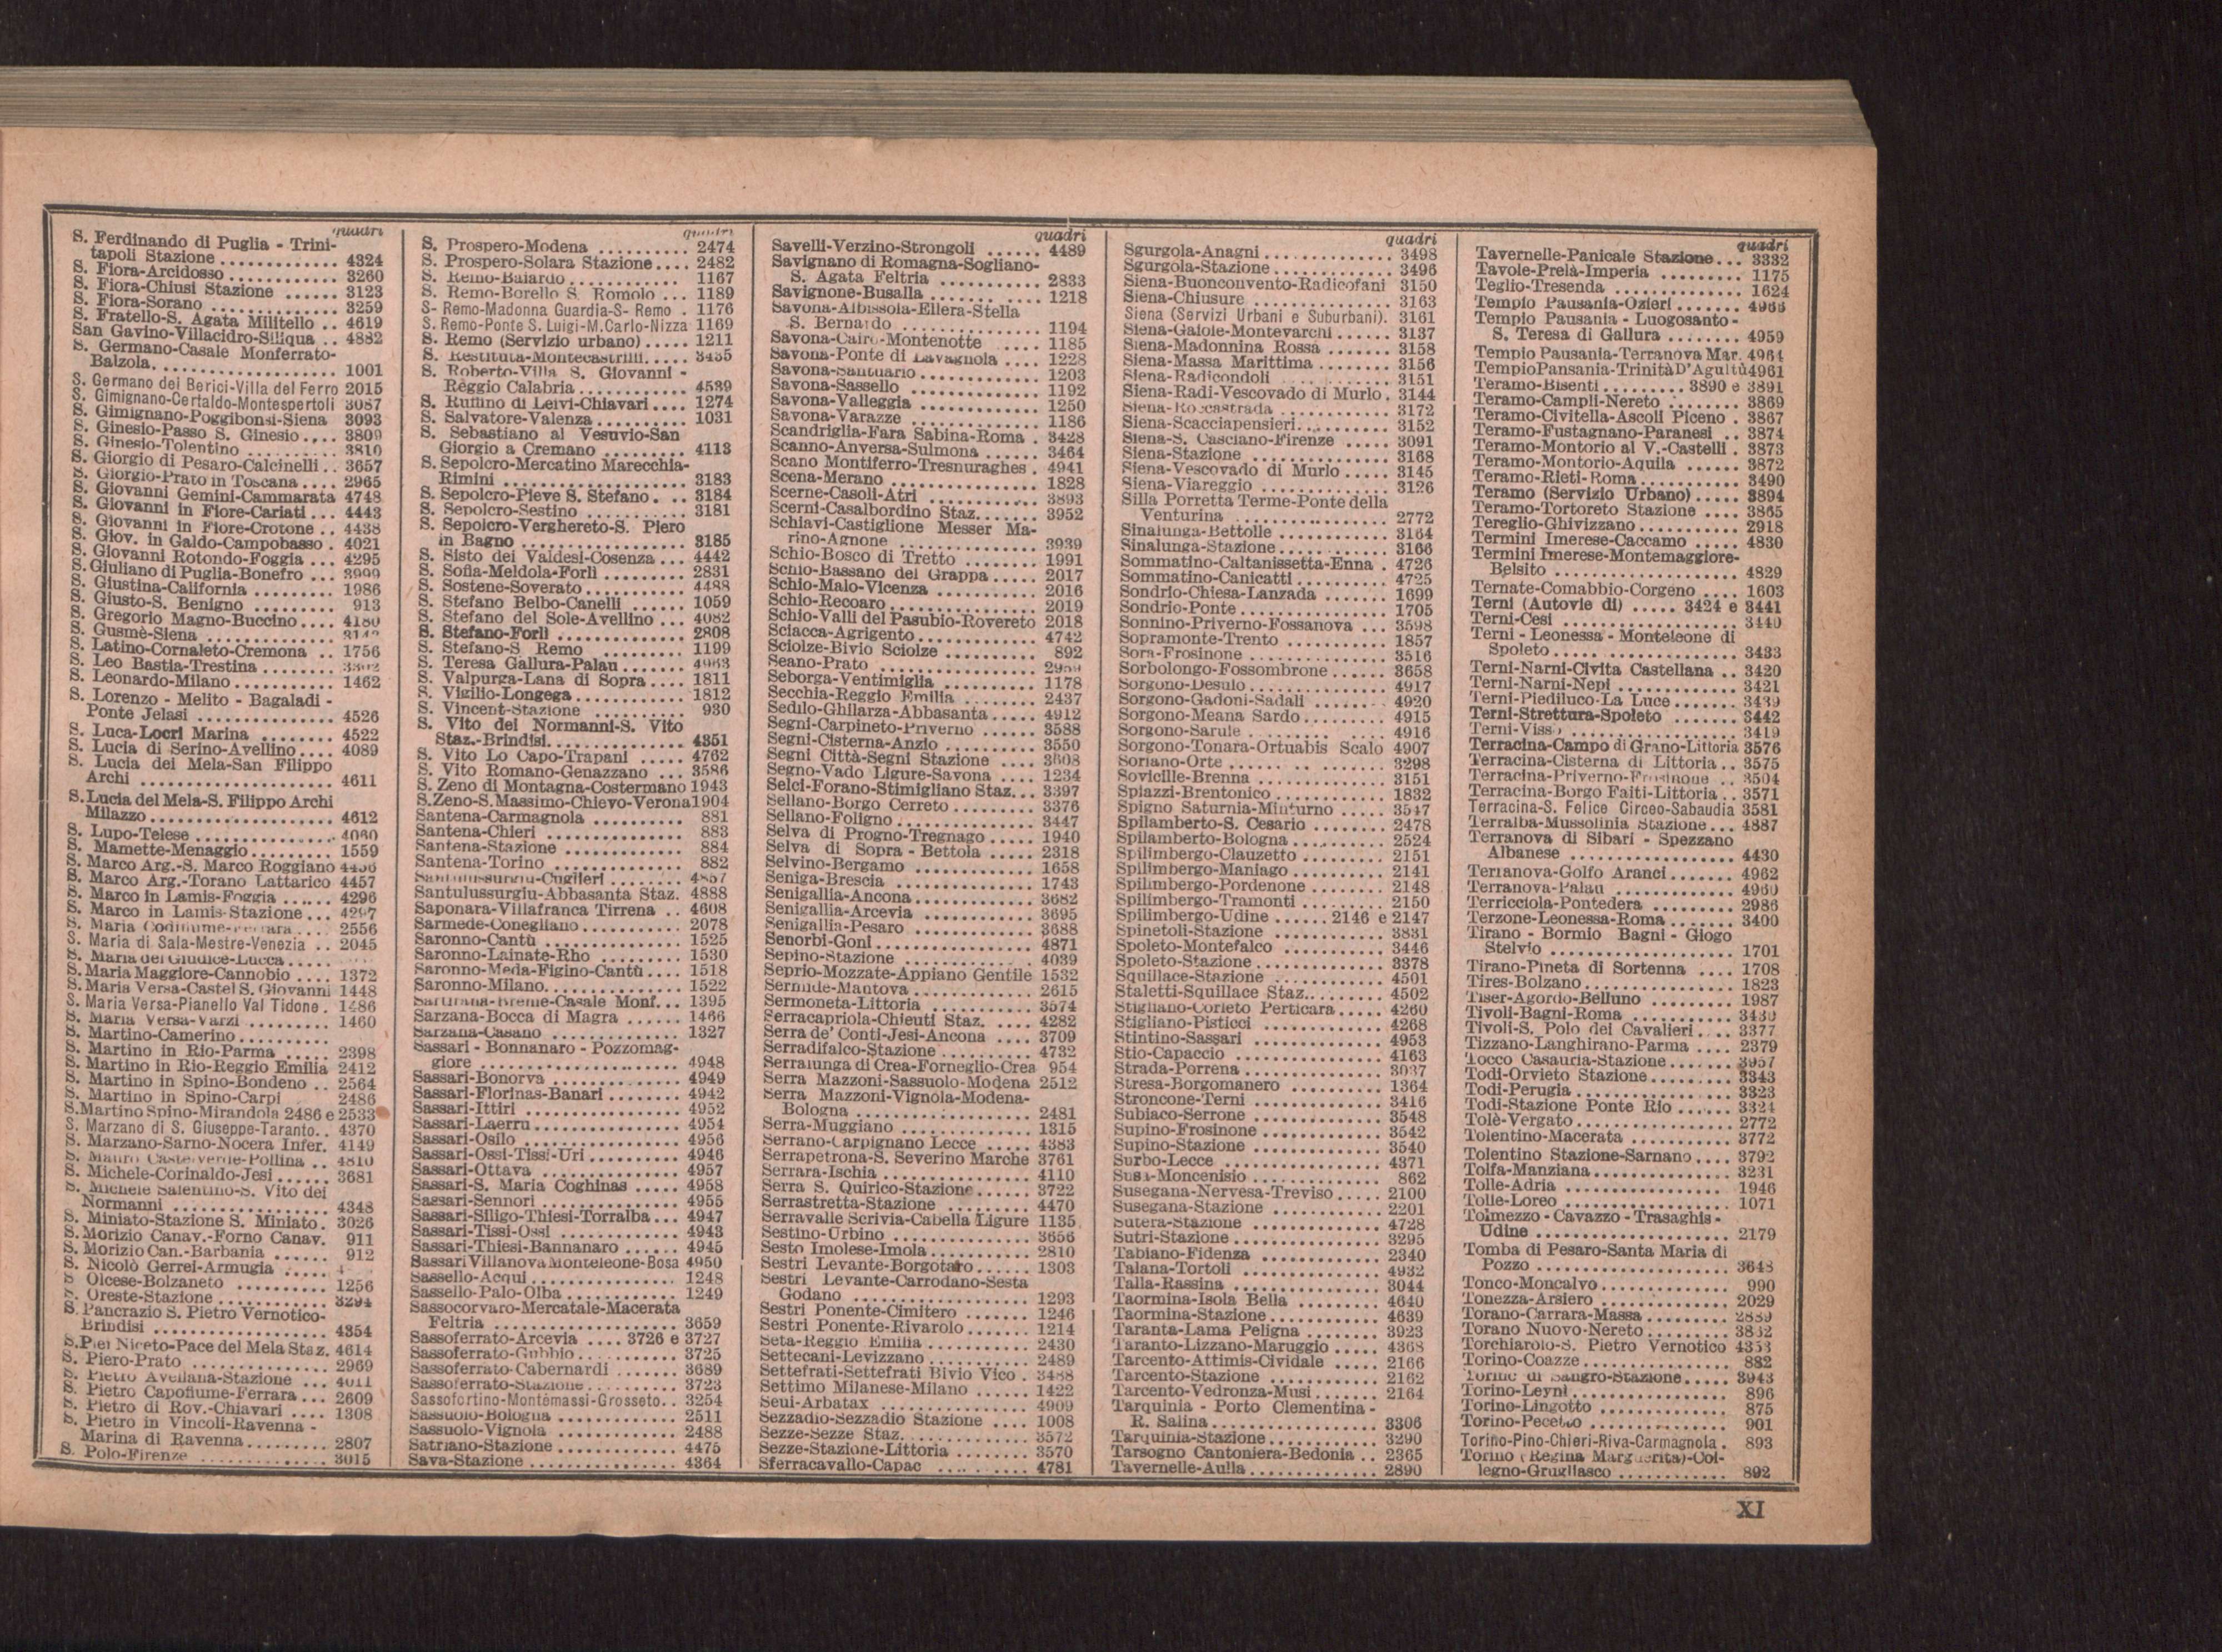 quadri
S. Ferdinando di Puglia - Trini-
tapoli Stazione ............. 4324
S. Fiora-Arcidosso ............ 3260
S. Fiora-Chiusi Stazione ...... 3123
S. Fiora-Sorano ............... 3259
S. Fratello-S. Agata Militello .. 4619
San Gavino-Villacidro-Siliqua .. 4882
S. Germano-Casale Monferrato-
Balzola. .................... 1001
S. Germano dei Berici-Villa del Ferro 2015
S. Gimignano-Certaldo-Montespertoli 3087
S. Gimignano-Poggibonsi-Siena 3093
S. Ginesio-Passo S. Ginesio .... 3809
S. Ginesio-Tolentino .......... 3810
S. Giorgio di Pesaro-Calcinelli .. 3657
S. Giorgio-Prato in Toscana .... 2965
S. Giovanni Gemini-Cammarata 4748
S. Giovanni in Fiore-Cariati ... 4443
S. Giovanni in Fiore-Crotone .. 4438
S. Giov. in Galdo-Campobasso . 4021
S. Giovanni Rotondo-Foggia ... 4295
S. Giuliano di Puglia-Bonefro ... 3999
S. Giustina-California ......... 1986
S. Giusto-S. Benigno ......... 913
S. Gregorio Magno-Buccino .... 4180
S. Gusmè-Siena ..............
S. Latino-Cornaleto-Cremona .. 1756
S. Leo Bastia-Trestina ........
S. Leonardo-Milano ........... 1462
S. Lorenzo - Melito - Bagaladi -
Ponte Jelasi ............... 4526
S. Luca-Locri Marina ........ 4522
S. Lucia di Serino-Avellino .... 4089
S. Lucia dei Mela-San Filippo
Archi ..................... 4611
S. Lucia del Mela-S. Filippo Archi
Milazzo .................... 4612
S. Lupo-Telese ............... 4080
S. Mamette-Menaggio ......... 1559
S. Marco Arg.-S. Marco Roggiano 4456
S. Marco Arg.-Torano Lattarico 4457
S. Marco in Lamis-Foggia ...... 4296
S. Marco in Lamis-Stazione ... 4297
S. Maria Codifiume-Ferrara .... 2556
S. Maria di Sala-Mestre-Venezia .. 2045
S. Maria del Giudice-Lucca .....
S. Maria Maggiore-Cannobio .... 1372
S. Maria Versa-Castel S. Giovanni 1448
S. Maria Versa-Pianello Val Tidone . 1486
S. Maria Versa-Varzi ......... 1460
S. Martino-Camerino ..........
S. Martino in Rio-Parma ..... 2398
S. Martino in Rio-Reggio Emilia 2412
S. Martino in Spino-Bondeno .. 2564
S. Martino in Spino-Carpi 2486
S. Martino Spino-Mirandola 2486 e 2533
S. Marzano di S. Giuseppe-Taranto.. 4370
S. Marzano-Sarno-Nocera Infer. 4149
S. Mauro Castelverde-Pollina .. 4810
S. Michele-Corinaldo-Jesi ...... 3681
S. Michele Salentino-S. Vito dei
Normanni ................. 4348
S. Miniato-Stazione S. Miniato. 3026
S. Morizio Canav.-Forno Canav. 911
S. Morizio Can.-Barbania ...... 912
S. Nicolò Gerrei-Armugia .....
S Olcese-Bolzaneto ........... 1256
S. Oreste-Stazione ............ 3294
S. Pancrazio S. Pietro Vernotico-
Brindisi ................... 4354
S. Pier Niceto-Pace del Mela Staz. 4614
S. Piero-Prato ............... 2969
S. Pietro Avellana-Stazione ... 4011
S. Pietro Capofiume-Ferrara ... 2609
S. Pietro di Rov.-Chiavari .... 1308
S. Pietro in Vincoli-Ravenna -
Marina di Ravenna ......... 2807
S. Polo-Firenze .............. 3015
quadri
S. Prospero-Modena .......... 2474
S. Prospero-Solara Stazione .... 2482
S. Remo-Baiardo ............ 1167
S. Remo-Borello S. Romolo ... 1189
S- Remo-Madonna Guardia-S- Remo . 1176
S. Remo-Ponte S. Luigi-M.Carlo-Nizza 1169
S. Remo (Servizio urbano) ..... 1211
S. Restituta-Montecastrilli. .... 3435
S. Roberto-Villa S. Giovanni -
Reggio Calabria ............ 4539
S. Ruffino di Leivi-Chiavari .... 1274
S. Salvatore-Valenza .......... 1031
S. Sebastiano al Vesuvio-San
Giorgio a Cremano ......... 4113
S. Sepolcro-Mercatino Marecchia-
Rimini .................... 3183
S. Sepolcro-Pieve S. Stefano . .. 3184
S. Sepolcro-Sestino ........... 3181
S. Sepolcro-Verghereto-S. Piero
in Bagno .................. 3185
S. Sisto dei Valdesi-Cosenza ... 4442
S. Sofia-Meldola-Forlì ......... 2831
S. Sostene-Soverato ........... 4488
S. Stefano Belbo-Canelli ...... 1059
S. Stefano del Sole-Avellino ... 4082
S. Stefano-Forlì .............. 2808
S. Stefano-S Remo .......... 1199
S. Teresa Gallura-Palau ....... 4963
S. Valpurga-Lana di Sopra .... 1811
S. Vigilio-Longega ............ 1812
S. Vincent-Stazione .......... 930
S. Vito dei Normanni-S. Vito
Staz.-Brindisi. .............. 4351
S. Vito Lo Capo-Trapani ..... 4762
S. Vito Romano-Genazzano ... 3586
S. Zeno di Montagna-Costermano 1943
S.Zeno-S.Massimo-Chievo-Verona 1904
Santena-Carmagnola ......... 881
Santena-Chieri .............. 883
Santena-Stazione ............ 884
Santena-Torino ............. 882
Santulussurgiu-Cuglieri ........ 4857
Santulussurgiu-Abbasanta Staz. 4888
Saponara-Villafranca Tirrena .. 4608
Sarmede-Conegliano .......... 2078
Saronno-Cantù .............. 1525
Saronno-Lainate-Rho ......... 1530
Saronno-Meda-Figino-Cantù .... 1518
Saronno-Milano. ............. 1522
Sartirana-Breme-Casale Monf. .. 1395
Sarzana-Bocca di Magra ...... 1466
Sarzana-Casano ............. 1327
Sassari - Bonnanaro - Pozzomag-
giore ...................... 4948
Sassari-Bonorva ............. 4949
Sassari-Florinas-Banari ........ 4942
Sassari-Ittiri ................ 4952
Sassari-Laerru ............... 4954
Sassari-Osilo ................ 4956
Sassari-Ossi-Tissi-Uri .......... 4946
Sassari-Ottava .............. 4957
Sassari-S. Maria Coghinas ..... 4958
Sassari-Sennori .............. 4955
Sassari-Siligo-Thiesi-Torralba ... 4947
Sassari-Tissi-Ossi ............. 4943
Sassari-Thiesi-Bannanaro ...... 4945
Sassari Villanova Monteleone-Bosa 4950
Sassello-Acqui .............. 1248
Sassello-Palo-Olba ........... 1249
Sassocorvaro-Mercatale-Macerata
Feltria .................... 3659
Sassoferrato-Arcevia .... 3726 e 3727
Sassoferrato-Gubbio .......... 3725
Sassoferrato-Cabernardi ....... 3689
Sassoferrato-Stazione .......... 3723
Sassofortino-Montemassi-Grosseto.. 3254
Sassuolo-Bologna ............ 2511
Sassuolo-Vignola ............ 2488
Satriano-Stazione ............ 4475
Sava-Stazione ............... 4364
quadri
Savelli-Verzino-Strongoli ...... 4489
Savignano di Romagna-Sogliano-
S. Agata Feltria ............ 2833
Savignone-Busalla ........... 1218
Savona-Albissola-Ellera-Stella
S. Bernardo ............... 1194
Savona-Cairo-Montenotte .... 1185
Savona-Ponte di Lavagnola ... 1228
Savona-Santuario ............ 1203
Savona-Sassello ............. 1192
Savona-Valleggia ............ 1250
Savona-Varazze ............. 1186
Scandriglia-Fara Sabina-Roma . 3428
Scanno-Anversa-Sulmona ...... 3464
Scano Montiferro-Tresnuraghes . 4941
Scena-Merano ............... 1828
Scerne-Casoli-Atri ............ 3893
Scerni-Casalbordino Staz. ...... 3952
Schiavi-Castiglione Messer Ma-
rino-Agnone ............... 3939
Schio-Bosco di Tretto ........ 1991
Schio-Bassano del Grappa ..... 2017
Schio-Malo-Vicenza .......... 2016
Schio-Recoaro ............... 2019
Schio-Valli del Pasubio-Rovereto 2018
Sciacca-Agrigento ............ 4742
Sciolze-Bivio Sciolze ......... 892
Seano-Prato ................ 2959
Seborga-Ventimiglia .......... 1178
Secchia-Reggio Emilia ........ 2437
Sedilo-Ghilarza-Abbasanta ..... 4912
Segni-Carpineto-Priverno ..... 3588
Segni-Cisterna-Anzio ......... 3550
Segni Città-Segni Stazione .... 3608
Segno-Vado Ligure-Savona .... 1234
Selci-Forano-Stimigliano Staz... 3397
Sellano-Borgo Cerreto ......... 3376
Sellano-Foligno .............. 3447
Selva di Progno-Tregnago ..... 1940
Selva di Sopra - Bettola ..... 2318
Selvino-Bergamo ............ 1658
Seniga-Brescia .............. 1743
Senigallia-Ancona ............ 3682
Senigallia-Arcevia ............ 3695
Senigallia-Pesaro ............ 3688
Senorbi-Goni ................ 4871
Sepino-Stazione ............. 4039
Seprio-Mozzate-Appiano Gentile 1532
Sermide-Mantova ............ 2615
Sermoneta-Littoria ........... 3574
Serracapriola-Chieuti Staz. .... 4282
Serra de' Conti-Jesi-Ancona ... 3709
Serradifalco-Stazione .......... 4732
Serralunga di Crea-Forneglio-Crea 954
Serra Mazzoni-Sassuolo-Modena 2512
Serra Mazzoni-Vignola-Modena-
Bologna ................... 2481
Serra-Muggiano ............. 1315
Serrano-Carpignano Lecce ..... 4383
Serrapetrona-S. Severino Marche 3761
Serrara-Ischia ............... 4110
Serra S. Quirico-Stazione ...... 3722
Serrastretta-Stazione .......... 4470
Serravalle Scrivia-Cabella Ligure 1135
Sestino-Urbino .............. 3656
Sesto Imolese-Imola .......... 2810
Sestri Levante-Borgotaro ...... 1303
Sestri Levante-Carrodano-Sesta
Godano ................... 1293
Sestri Ponente-Cimitero ...... 1246
Sestri Ponente-Rivarolo ....... 1214
Seta-Reggio Emilia .......... 2430
Settecani-Levizzano .......... 2489
Settefrati-Settefrati Bivio Vico . 3488
Settimo Milanese-Milano ...... 1422
Seui-Arbatax ............... 4909
Sezzadio-Sezzadio Stazione .... 1008
Sezze-Sezze Staz. ............ 3572
Sezze-Stazione-Littoria ........ 3570
Sferracavallo-Capac .......... 4781
quadri
Sgurgola-Anagni ............. 3498
Sgurgola-Stazione ............ 3496
Siena-Buonconvento-Radicofani 3150
Siena-Chiusure .............. 3163
Siena (Servizi Urbani e Suburbani). 3161
Siena-Gaiole-Montevarchi ...... 3137
Siena-Madonnina Rossa ....... 3158
Siena-Massa Marittima ....... 3156
Siena-Radicondoli ............ 3151
Siena-Radi-Vescovado di Murlo . 3144
Siena-Roccastrada ........... 3172
Siena-Scacciapensieri.......... 3152
Siena-S. Casciano-Firenze ..... 3091
Siena-Stazione .............. 3168
Siena-Vescovado di Murlo ..... 3145
Siena-Viareggio ............. 3126
Silla Porretta Terme-Ponte della
Venturina ................. 2772
Sinalunga-Bettolle ........... 3164
Sinalunga-Stazione ........... 3166
Sommatino-Caltanissetta-Enna . 4726
Sommatino-Canicattì ......... 4725
Sondrio-Chiesa-Lanzada ...... 1699
Sondrio-Ponte ............... 1705
Sonnino-Priverno-Fossanova ... 3598
Sopramonte-Trento .......... 1857
Sora-Frosinone .............. 3516
Sorbolongo-Fossombrone ...... 3658
Sorgono-Desulo .............. 4917
Sorgono-Gadoni-Sadali ........ 4920
Sorgono-Meana Sardo ........ 4915
Sorgono-Sarule .............. 4916
Sorgono-Tonara-Ortuabis Scalo 4907
Soriano-Orte ............... 3298
Sovicille-Brenna ............. 3151
Spiazzi-Brentonico ........... 1832
Spigno Saturnia-Minturno .... 3547
Spilamberto-S. Cesario ........ 2478
Spilamberto-Bologna ......... 2524
Spilimbergo-Clauzetto ........ 2151
Spilimbergo-Maniago ......... 2141
Spilimbergo-Pordenone ....... 2148
Spilimbergo-Tramonti ........ 2150
Spilimbergo-Udine ...... 2146 e 2147
Spinetoli-Stazione ........... 3831
Spoleto-Montefalco .......... 3446
Spoleto-Stazione ............. 3378
Squillace-Stazione ........... 4501
Staletti-Squillace Staz.. ....... 4502
Stigliano-Corleto Perticara ..... 4260
Stigliano-Pisticci ............ 4268
Stintino-Sassari ............. 4953
Stio-Capaccio ............... 4163
Strada-Porrena .............. 3037
Stresa-Borgomanero ......... 1364
Stroncone-Terni ............. 3416
Subiaco-Serrone ............. 3548
Supino-Frosinone ............ 3542
Supino-Stazione ............. 3540
Surbo-Lecce ................ 4371
Susa-Moncenisio ............ 862
Susegana-Nervesa-Treviso ..... 2100
Susegana-Stazione ........... 2201
Sutera-Stazione ............. 4728
Sutri-Stazione ............... 3295
Tabiano-Fidenza ............ 2340
Talana-Tortolì .............. 4932
Talla-Rassina ............... 3044
Taormina-Isola Bella ......... 4640
Taormina-Stazione ........... 4639
Taranta-Lama Peligna ........ 3923
Taranto-Lizzano-Maruggio .... 4368
Tarcento-Attimis-Cividale ..... 2166
Tarcento-Stazione ........... 2162
Tarcento-Vedronza-Musi ....... 2164
Tarquinia - Porto Clementina -
R. Salina .................. 3306
Tarquinia-Stazione ........... 3290
Tarsogno Cantoniera-Bedonia .. 2365
Tavernelle-Aulla ............. 2890
quadri
Tavernelle-Panicale Stazione... 3332
Tavole-Prelà-Imperia ......... 1175
Teglio-Tresenda ............. 1624
Tempio Pausania-Ozieri ....... 4966
Tempio Pausania - Luogosanto -
S. Teresa di Gallura ....... 4959
Tempio Pausania-Terranova Mar. 4964
TempioPansania-TrinitàD'Agultù4961
Teramo-Bisenti ......... 3890 e 3891
Teramo-Campli-Nereto ....... 3869
Teramo-Civitella-Ascoli Piceno . 3867
Teramo-Fustagnano-Paranesi .. 3874
Teramo-Montorio al V.-Castelli . 3873
Teramo-Montorio-Aquila ...... 3872
Teramo-Rieti-Roma .......... 3490
Teramo (Servizio Urbano) ..... 3894
Teramo-Tortoreto Stazione .... 3865
Tereglio-Ghivizzano .......... 2918
Termini Imerese-Caccamo ..... 4830
Termini Imerese-Montemaggiore-
Belsito .................... 4829
Ternate-Comabbio-Corgeno .... 1603
Terni (Autovie di) ..... 3424 e 3441
Terni-Cesi .................. 3440
Terni - Leonessa - Monteleone di
Spoleto .................... 3433
Terni-Narni-Civita Castellana .. 3420
Terni-Narni-Nepi ............ 3421
Terni-Piediluco-La Luce ....... 3439
Terni-Strettura-Spoleto ....... 3442
Terni-Visso ................. 3419
Terracina-Campo di Grano-Littoria 3576
Terracina-Cisterna di Littoria .. 3575
Terracina-Priverno-Frosinone .. 3504
Terracina-Borgo Faiti-Littoria .. 3571
Terracina-S. Felice Circeo-Sabaudia 3581
Terralba-Mussolinia Stazione ... 4887
Terranova di Sibari - Spezzano
Albanese .................. 4430
Terranova-Golfo Aranci ....... 4962
Terranova-Palau ............ 4960
Terricciola-Pontedera ......... 2986
Terzone-Leonessa-Roma ....... 3400
Tirano - Bormio Bagni - Giogo
Stelvio .................... 1701
Tirano-Pineta di Sortenna .... 1708
Tires-Bolzano ............... 1823
Tiser-Agordo-Belluno ......... 1987
Tivoli-Bagni-Roma ........... 3430
Tivoli-S. Polo dei Cavalieri .... 3377
Tizzano-Langhirano-Parma .... 2379
Tocco Casauria-Stazione ....... 3957
Todi-Orvieto Stazione ......... 3343
Todi-Perugia ................ 3323
Todi-Stazione Ponte Rio ...... 3324
Tolè-Vergato ................ 2772
Tolentino-Macerata .......... 3772
Tolentino Stazione-Sarnano .... 3792
Tolfa-Manziana .............. 3231
Tolle-Adria ................. 1946
Tolle-Loreo ................. 1071
Tolmezzo - Cavazzo - Trasaghis -
Udine ..................... 2179
Tomba di Pesaro-Santa Maria di
Pozzo ..................... 3648
Tonco-Moncalvo ............. 990
Tonezza-Arsiero ............. 2029
Torano-Carrara-Massa ........ 2889
Torano Nuovo-Nereto ........ 3832
Torchiarolo-S. Pietro Vernotico 4353
Torino-Coazze ............... 882
Torino di Sangro-Stazione ..... 3943
Torino-Leynì ................ 896
Torino-Lingotto ............. 875
Torino-Pecetto .............. 901
Torino-Pino-Chieri-Riva-Carmagnola . 893
Torino (Regina Margherita)-Col-
legno-Grugliasco ............ 892
XI